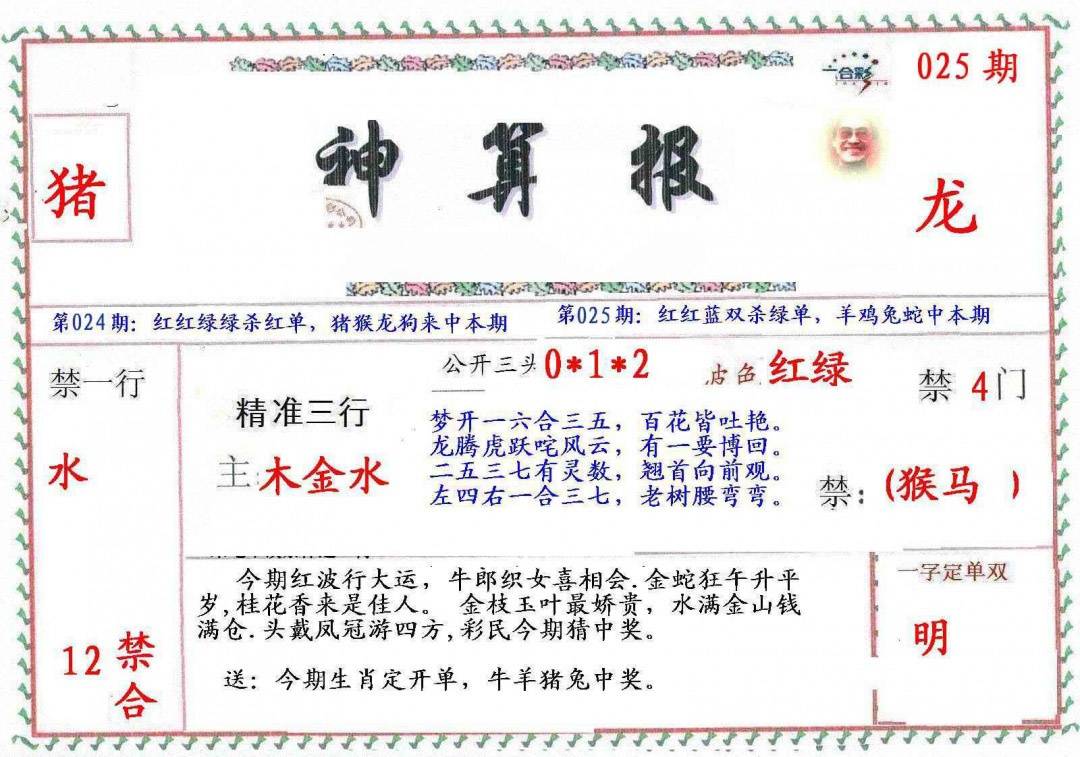 合彩
025 期
猪
神算报
龙
第024期：红红绿绿杀红单，猪猴龙狗来中本期
第025期：红红蓝双杀绿单，羊鸡兔蛇中本期
禁一行
水
12 禁合
精准三行
主:木金水
公开三头 0*1*2
色 红绿
梦开一六合三五，百花皆吐艳。
龙腾虎跃咤风云，有一要博回。
二五三七有灵数，翘首向前观。
左四右一合三七，老树腰弯弯。
禁 4门
禁：(猴马 )
今期红波行大运，牛郎织女喜相会.金蛇狂午升平
岁,桂花香来是佳人。 金枝玉叶最娇贵，水满金山钱
满仓.头戴凤冠游四方,彩民今期猜中奖。
送：今期生肖定开单，牛羊猪兔中奖。
一字定单双
明